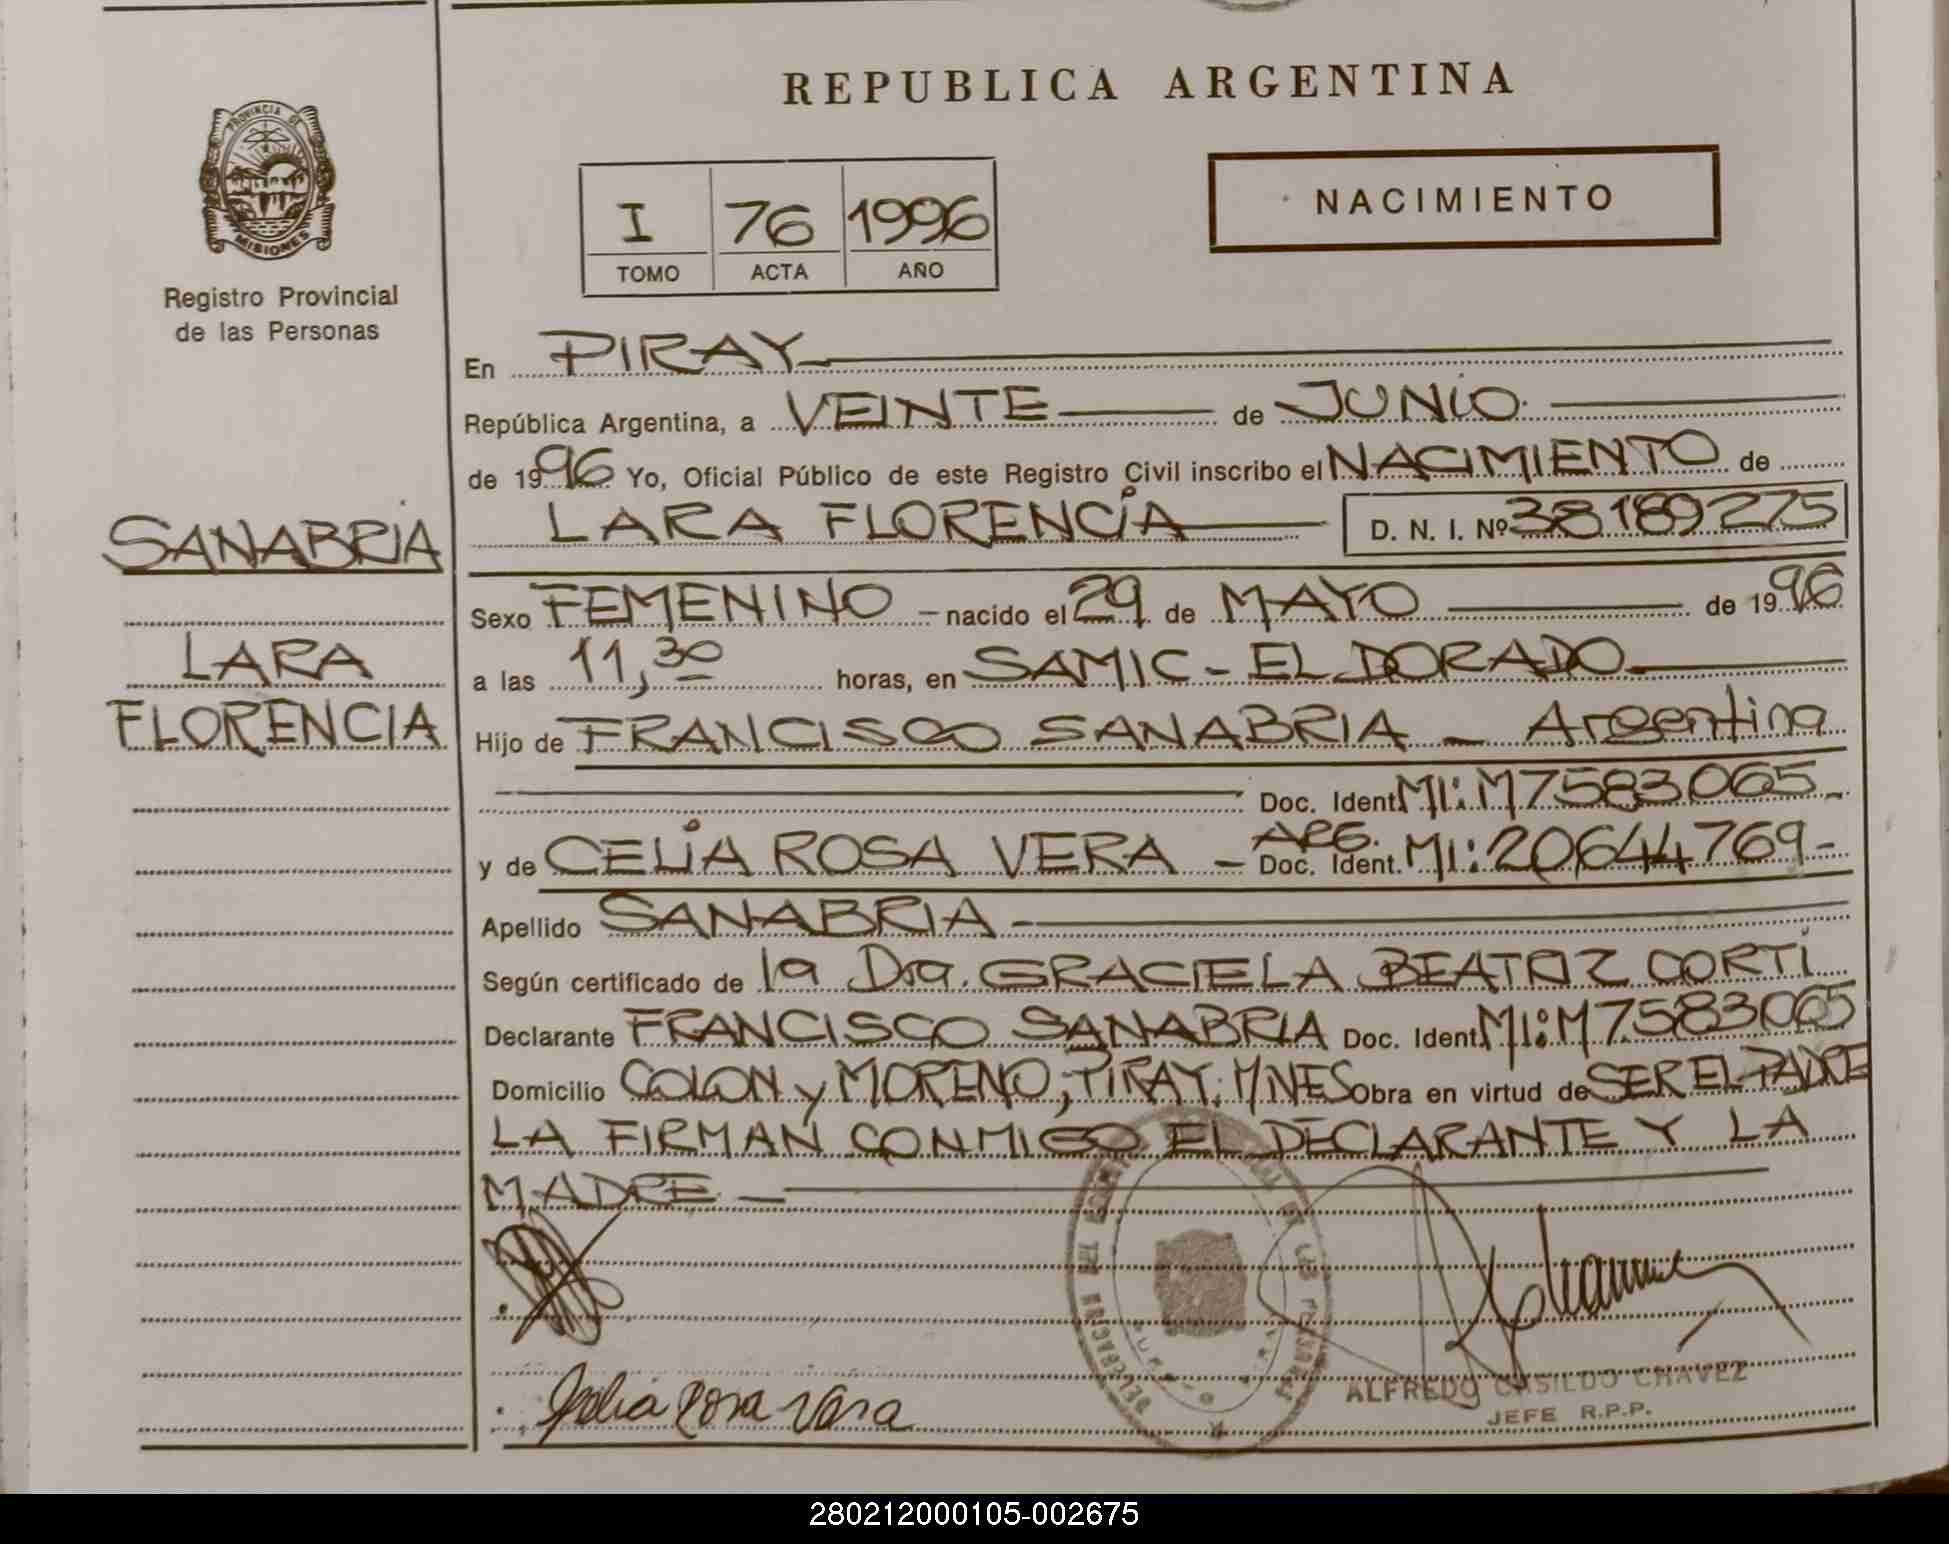 REPUBLICA ARGENTINA
PROVINCIA DE
MISIONES
Registro Provincial
de las Personas
NACIMIENTO
I 76 1996
TOMO ACTA AÑO
SANABRIA
LARA
FLORENCIA
En PIRAY
República Argentina, a VEINTE de JUNIO
de 1996 Yo, Oficial Público de este Registro Civil inscribo el NACIMIENTO de
LARA FLORENCIA D. N. I. Nº 38189275
Sexo FEMENINO - nacido el 29 de MAYO de 1996
a las 11,30 horas, en SAMIC - ELDORADO
Hijo de FRANCISCO SANABRIA - Argentina
Doc. Ident. MI: M7583065-
y de CELIA ROSA VERA - ARG. Doc. Ident. MI: 20644769-
Apellido SANABRIA
Según certificado de la Dra. GRACIELA BEATRIZ CORTI
Declarante FRANCISCO SANABRIA Doc. Ident. MI: M7583065
Domicilio COLON y MORENO, PIRAY, MNES Obra en virtud de SER EL PADRE
LA FIRMAN CONMIGO EL DECLARANTE Y LA
MADRE
Celia Rosa Vera
ALFREDO CASILDO CHAVEZ
JEFE R.P.P.
280212000105-002675